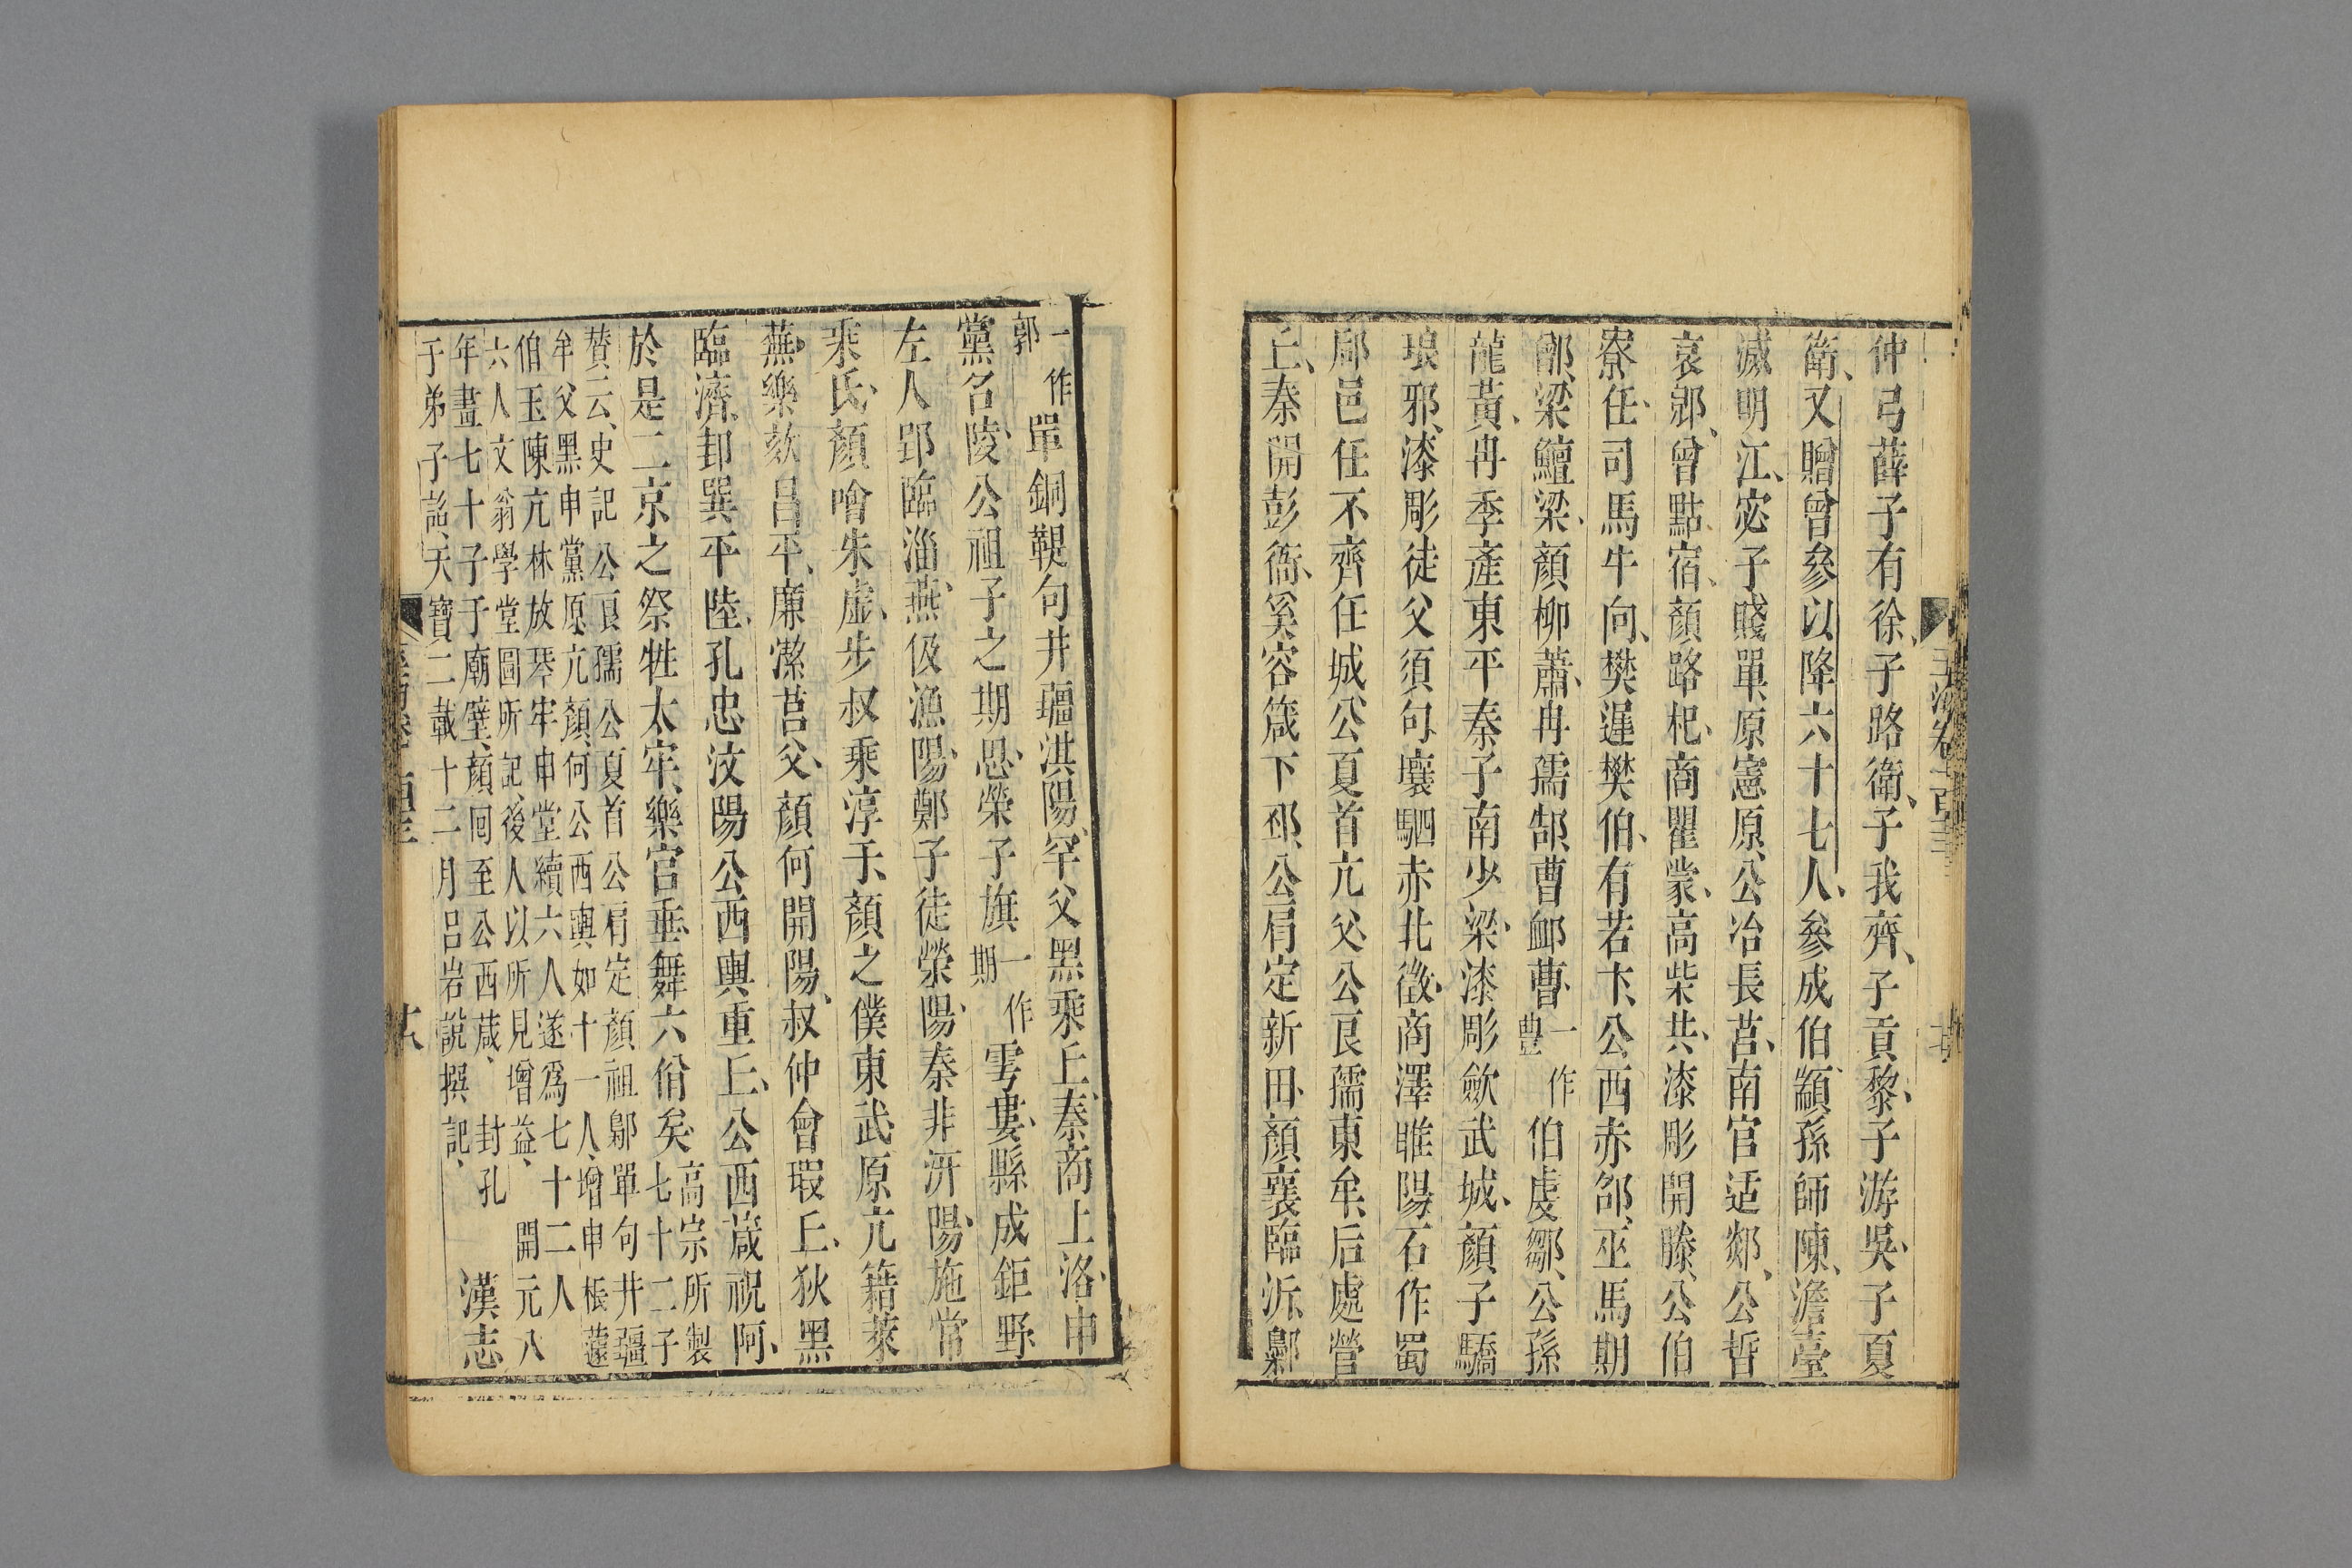 仲弓薛子有徐、子路衛、子我齊、子貢黎、子游吳、子夏
衛、又贈曾參以降六十七人、參成伯顓孫師陳、澹臺
滅明江、宓子賤單、原憲原、公冶長莒、南官适郯、公晳
哀郳、曾點宿、顏路杞、商瞿蒙、高柴共、漆彫開滕、公伯
寮任、司馬牛向、樊遲樊伯、有若卞、公西赤郃、巫馬期
鄫、梁鱣梁、顏柳蕭、冉孺郜、曹䘏曹、一作豊伯虔鄒、公孫
龍黃、冉季產東平秦子南少梁、漆彫歛武城、顏子驕
琅邪、漆彫徒父須句、壤駟赤北徵、商澤睢陽石作蜀
郈邑任不齊任城、公夏首亢父、公良孺東牟、后處營
丘、秦開彭衙、奚容箴下邳、公肩定新田、顏襄臨沂、鄡
一作郭單銅鞮句井疆淇陽、罕父黑乘丘、秦商上洛、申
黨名陵、公祖子之期思、榮子旗一作期雩婁、縣成鉅野
左人郢臨淄、燕伋漁陽、鄭子徒滎陽、秦非汧陽、施常
乘氏、顏噲朱虛、步叔乘淳于、顏之僕東武、原亢籍萊
蕪、樂欬昌平、廉潔莒父、顏何開陽、叔仲會瑕丘、狄黑
臨濟、邽巽平陸、孔忠汶陽公西輿重丘、公西蒧祝阿、
於是二京之祭牲太牢、樂官垂、舞六佾矣、高宗所製七十二子
贊云、史記公良孺公夏首公肩定顏祖鄡單句井疆
牟父黑申黨原亢顏何公西輿如十一人、增申棖蘧
伯玉陳亢林放琴牢申堂續六人遂為七十二人
六人文翁學堂圖所記、後人以所見增益、開元八
年畫七十子于廟壁、顏囘至公西蒧、封孔
于弟子詺、天寶二載十二月呂岩說撰記、漢志